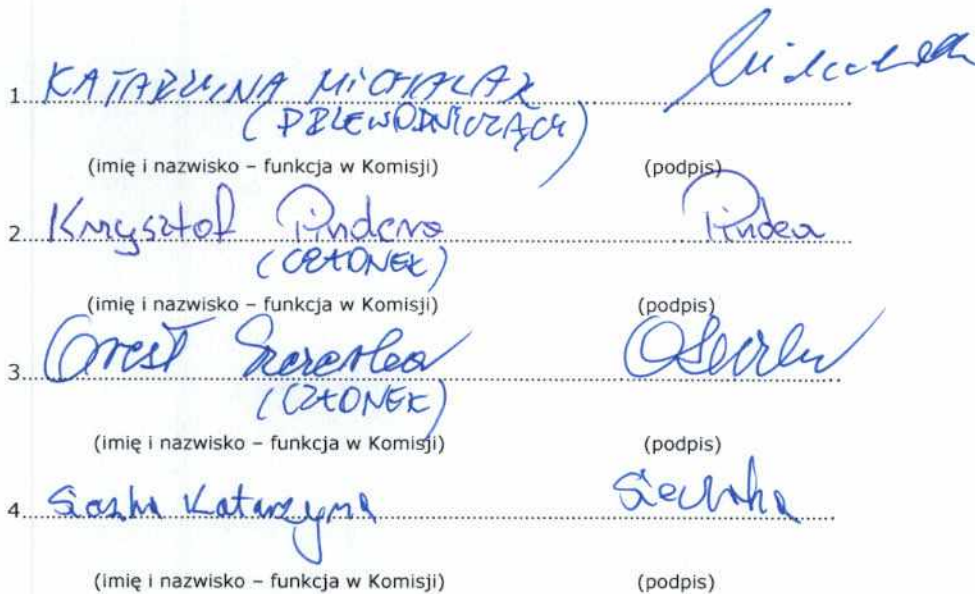 1. KATARZYNA MICHALAK
(PRZEWODNICZĄCY)
(imię i nazwisko – funkcja w Komisji) (podpis)
2. Krzysztof Pindera Pindera
(CZŁONEK)
(imię i nazwisko – funkcja w Komisji) (podpis)
3. Orest
(CZŁONEK)
(imię i nazwisko – funkcja w Komisji) (podpis)
4. Katarzyna
(imię i nazwisko – funkcja w Komisji) (podpis)